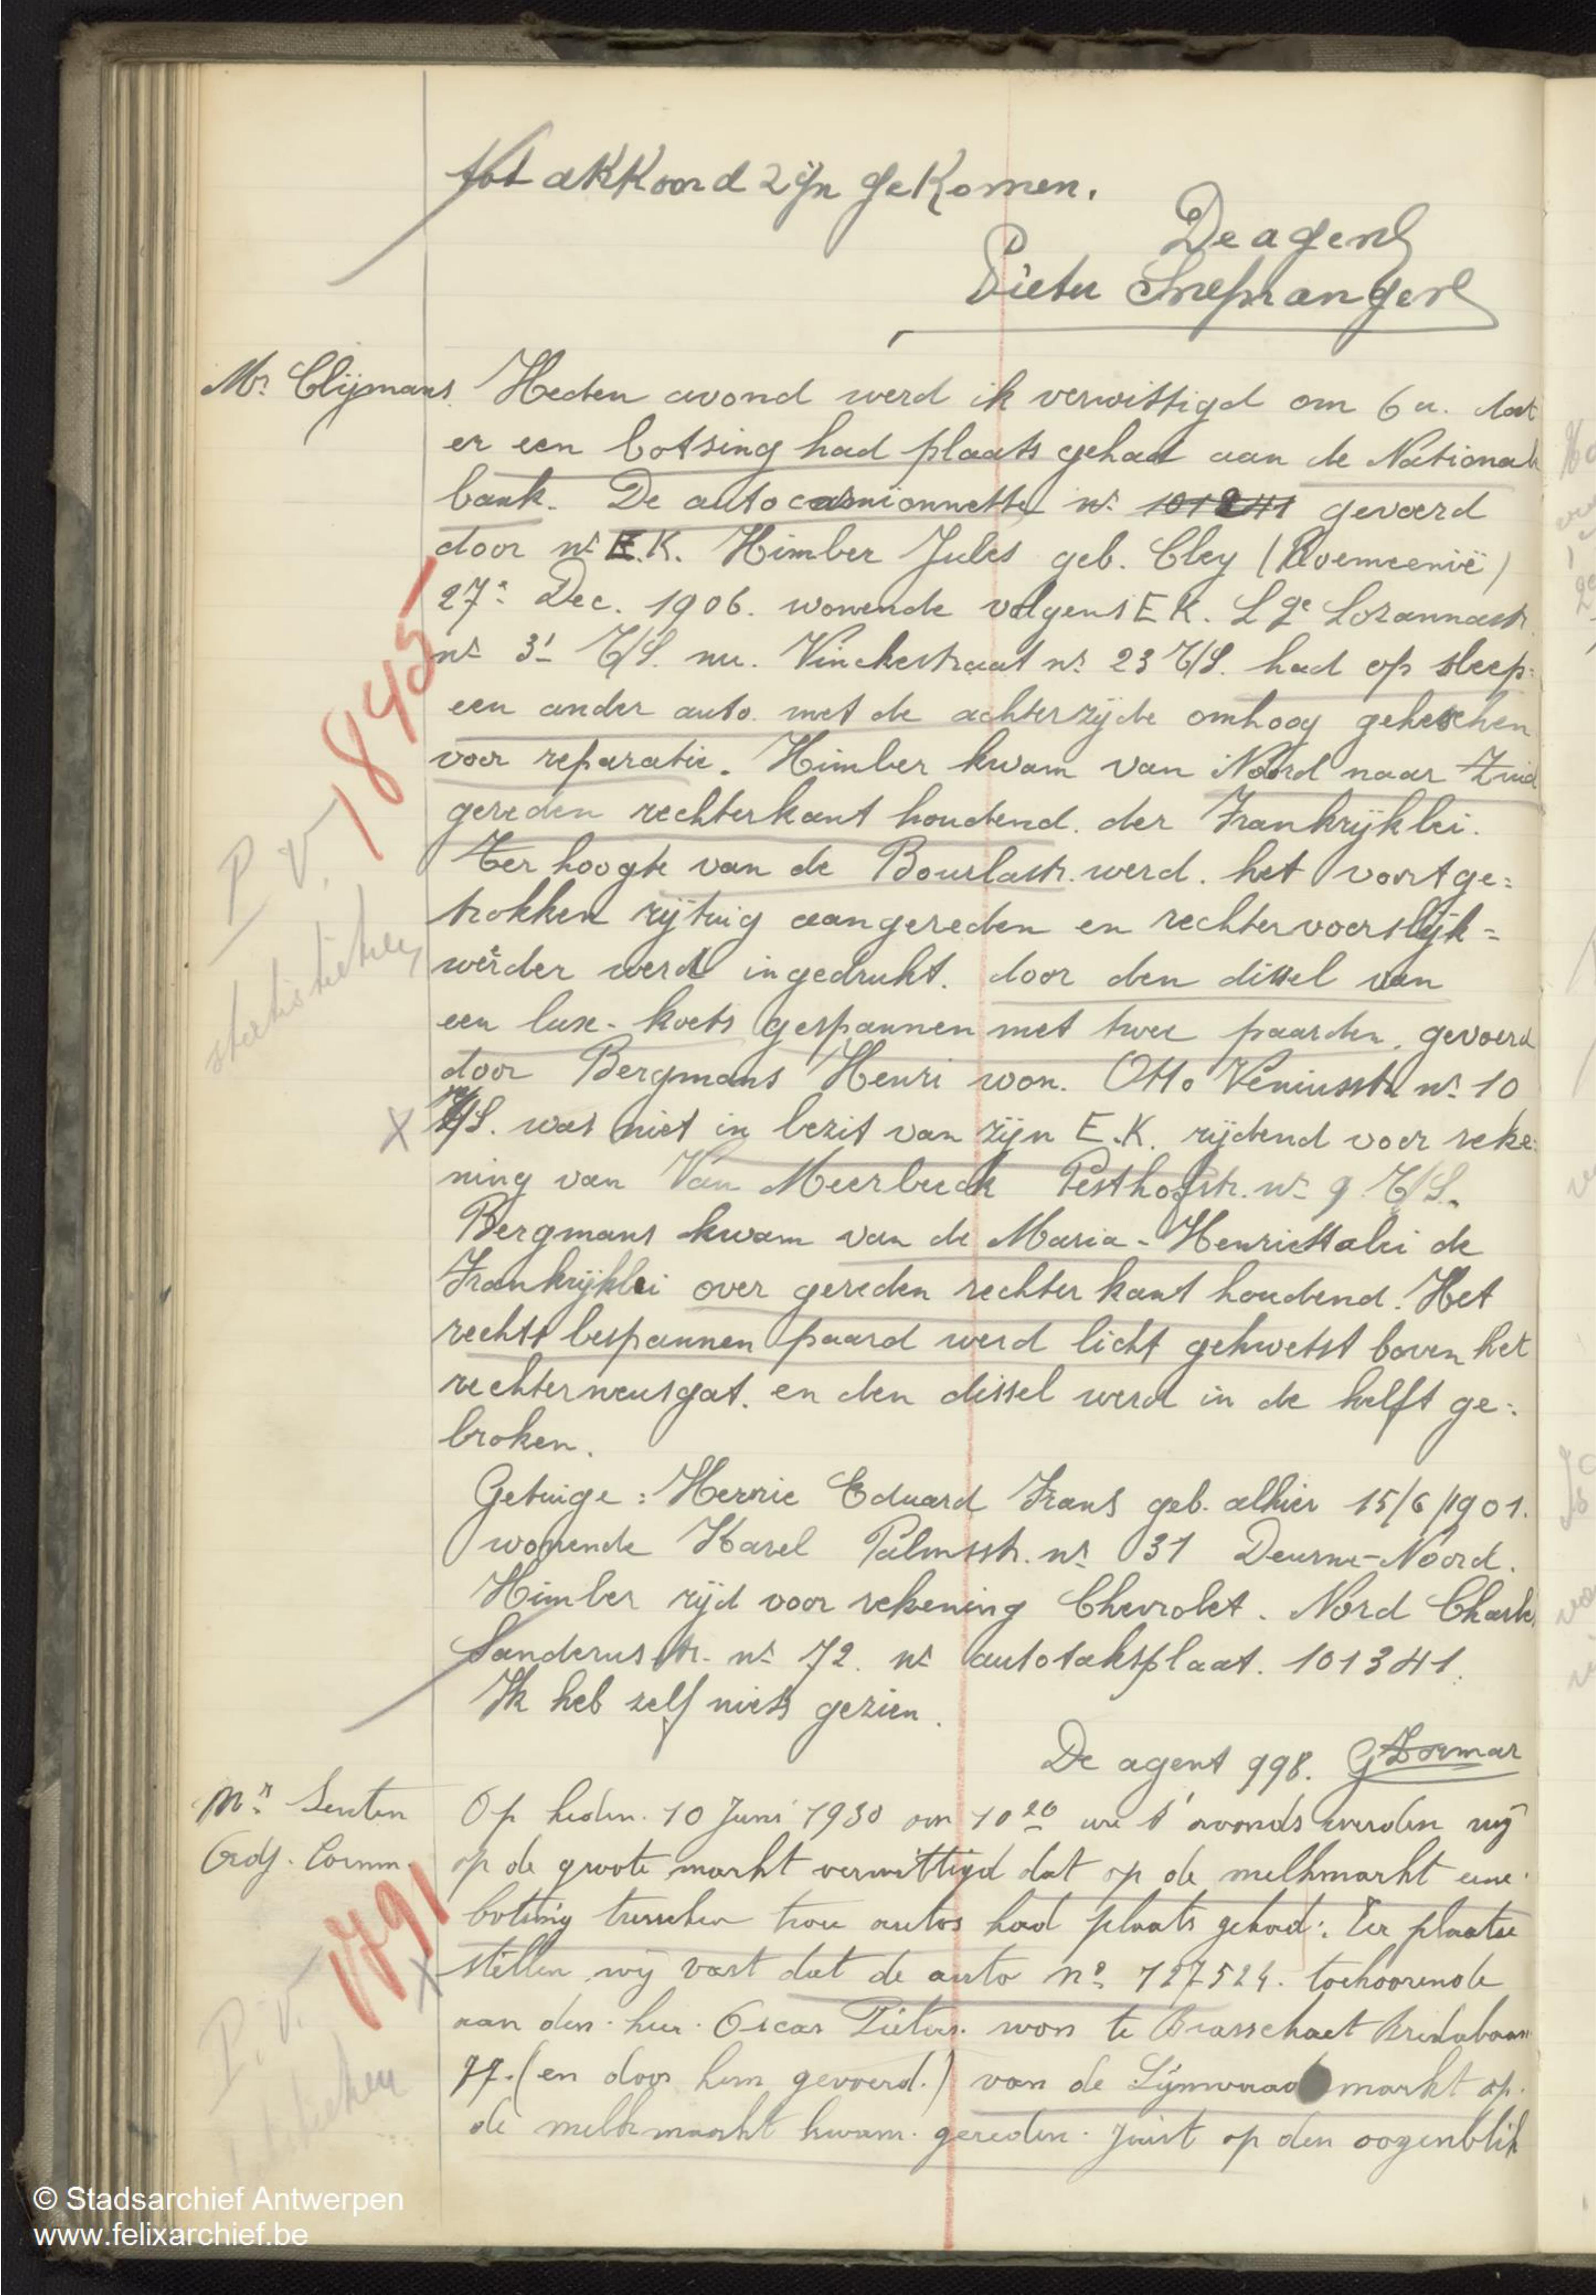 tot akkoord zijn gekomen.
De agent
Pieter
Mr. Clijmans
Heden avond werd ik verwittigd om 6 u. dat
er een botsing had plaats gehad aan de National
bank. De autocamionnette nr. 101241 gevoerd
door nr E.K. Himber Jules geb. Cley (Roemeenië)
27e Dec. 1906. wonende volgens E K. Lge Lozannastr.
nr 31 T/S. nu. Vinckestraat nr. 23 T/S. had op sleep=
een ander auto. met de achterzijde omhoog geheschen
voor reparatie. Himber kwam van Noord naar Zuid
gereden rechterkant houdend. der Frankrijklei.
Ter hoogte van de Bourlastr. werd. het voortge=
trokken rijtuig aangereden en rechtervoorslijk=
weerder werd ingedrukt. door den dissel van
een luxe-koets gespannen met twee paarden. gevoerd
door Bergmans Henri won. Otto Veniusstr nr. 10
T/S. was niet in bezit van zijn E.K. rijdend voor reke=
ning van Van Meerbeeck Pesthofstr. nr 9. T/S.
Bergmans kwam van de Maria-Henriettalei de
Frankrijklei over gereden rechter kant houdend. Het
rechts bespannen paard werd licht gekwetst boven het
rechterneusgat. en den dissel werd in de helft ge=
broken.
Getuige: Herrie Eduard Frans geb. alhier 15/6/1901.
wonende Karel Palmsstr. nr 31 Deurne-Noord.
Himber rijd voor rekening Chevrolet. Nord Charle
Sanderusstr. nr 72. nr autotaksplaat. 101341.
Ik heb zelf niets gezien.
De agent 998. G
P.V. 1845
statistieken
X
Mr. Senten
Adj. Comm.
Op heden. 10 Juni 1930 om 10 20 ure s'avonds werden wij
op de groote markt verwittigd dat op de melkmarkt eene
botsing tusschen twee autos had plaats gehad: Ter plaatse
stellen wij vast dat de auto no. 127524. toehoorende
aan den heer Oscar Pieters. won te Brasschaet Bredabaan
77. (en door hem gevoerd.) van de Lijnwaadmarkt op.
de melkmarkt kwam gereden. Juist op den oogenblik
P.V. 1791
X
© Stadsarchief Antwerpen
www.felixarchief.be